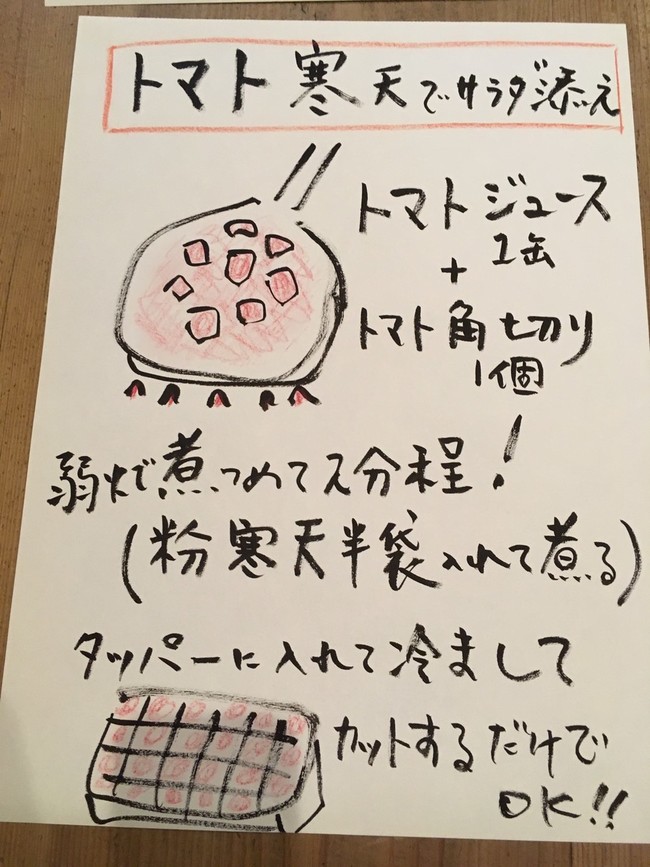 トマト寒天でサラダ添え
トマトジュース
1缶
+
トマト角切り
1個
弱火で煮つめて2分程!
(粉寒天半袋入れて煮る)
タッパーに入れて冷まして
カットするだけで
OK!!